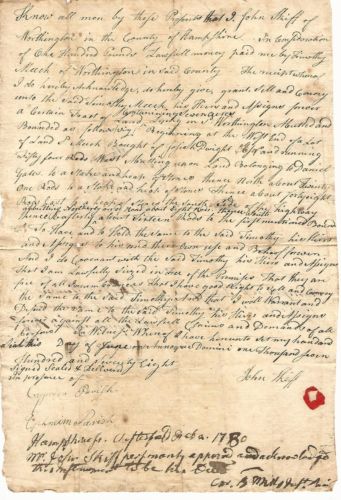 Know all men by these Presents that I John Skiff of
Worthington in the County of Hampshire. In Consideration
of One Hundred Pounds Lawfull money paid me by Timothy
Meech of Worthington in Said County. The receipt whereof
I do hereby acknowledge, do hereby give, grant, Sell and Convey
unto the Said Timothy Meech his Heirs and Assigns forever
a Certain Tract of Land Lying in Worthington
Bounded as followeth, Beginning at the West End of a Lot
of Land Sd Meech Bought of Joseph Dwight Esqr and running
fifty four Rods West Bounding upon Land Belonging to Daniel
Gates to a Stake and heap of Stones thence North about twenty
One Rods to a Stake and heap of Stones thence about fortyeight
Rods East
thence Easterly about Sixteen Rods to the first mentioned Bound
To Have and to Hold the Same to the Said Timothy his Heirs
and Assigns to his and their own use and Behoof forever
And I do Covenant with the Said Timothy his Heirs and Assigns
that I am Lawfully Seized in Fee of the Premises that they are
free of all Incumbrances that I have good Right to Sell and Convey
the Same to the Said Timothy and that I will Warrant and
Defend the Same to the Said Timothy his Heirs and Assigns
forever against the Lawfull Claims and Demands of all
Persons. In Witness Whereof I have hereunto Set my hand
and Seal this Day of June Annoque Domini One Thousand Seven
Hundred and Seventy Eight
Signed Sealed & Delivd
in presence of John Skiff
Parish
Ephraim Parish
Hampshire ss. 1780
Mr John Skiff personally appeard and acknowledgd
this instrument to be his Deed